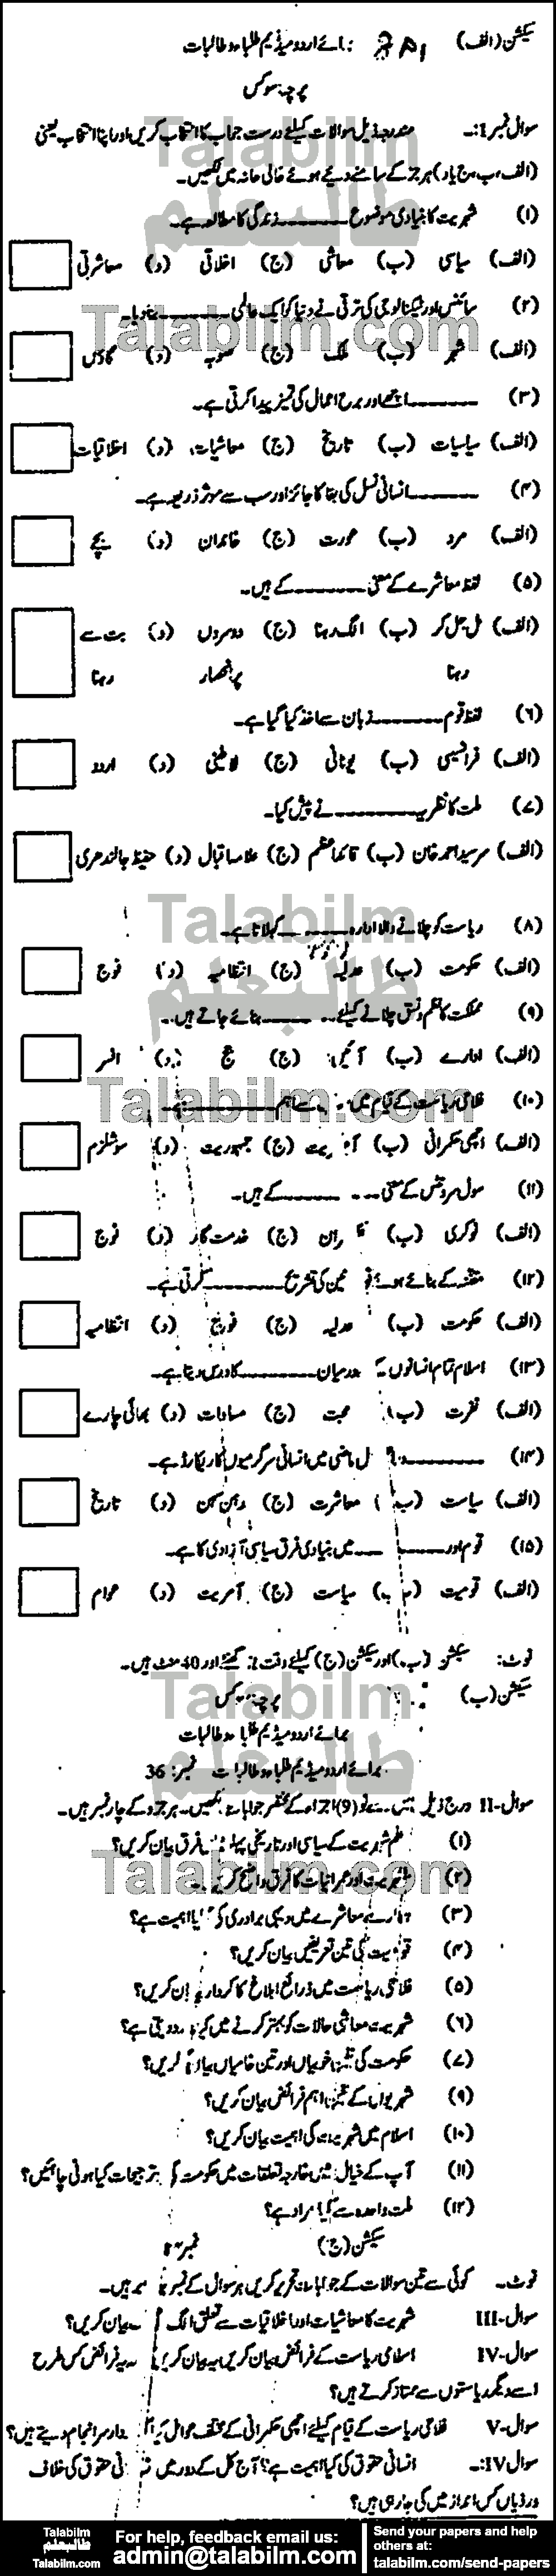 سیکشن (الف) برائے اردو میڈیم طلباء و طالبات
پرچہ: سوکس
سوال نمبر1:۔ مندرجہ ذیل سوالات کیلئے درست جواب کا انتخاب کریں اور اپنا انتخاب یعنی
(الف، ب، ج یا د) ہر جز کے سامنے دیئے ہوئے خالی خانہ میں لکھیں۔
(۱) شہریت کا بنیادی موضوع ــــــــ زندگی کا مطالعہ ہے۔
(الف) سیاسی (ب) معاشی (ج) اخلاقی (د) معاشرتی
(۲) سائنس اور ٹیکنالوجی کی ترقی نے دنیا کو ایک عالمی ــــــــ بنا دیا۔
(الف) شہر (ب) ملک (ج) صوبہ (د) گاؤں
(۳) ــــــــ اچھے اور برے اعمال کی تمیز پیدا کرتی ہے۔
(الف) سیاسیات (ب) تاریخ (ج) معاشیات (د) اخلاقیات
(۴) ــــــــ انسانی نسل کی بقا کا جائز اور سب سے موثر ذریعہ ہے۔
(الف) مرد (ب) عورت (ج) خاندان (د) بچے
(۵) لفظ معاشرے کے معنی ــــــــ کے ہیں۔
(الف) مل جل کر (ب) الگ رہنا (ج) دوسروں (د) بت سے
رہنا پر انحصار رہنا
(۶) لفظ قوم ــــــــ زبان سے اخذ کیا گیا ہے۔
(الف) فرانسیسی (ب) یونانی (ج) لاطینی (د) اردو
(۷) ملت کا نظریہ ــــــــ نے پیش کیا۔
(الف) سرسید احمد خان (ب) قائداعظم (ج) علامہ اقبال (د) حفیظ جالندھری
(۸) ریاست کو چلانے والا ادارہ ــــــــ کہلاتا ہے۔
(الف) حکومت (ب) عدلیہ (ج) انتظامیہ (د) فوج
(۹) مملکت کا نظم و نسق چلانے کیلئے ــــــــ بنائے جاتے ہیں۔
(الف) ادارے (ب) آئین (ج) جج (د) افسر
(۱۰) فلاحی ریاست کے قیام میں سب سے اہم ــــــــ ہے۔
(الف) اچھی حکمرانی (ب) آمریت (ج) جمہوریت (د) سوشلزم
(۱۱) سول سروس کے معنی ــــــــ کے ہیں۔
(الف) نوکری (ب) (ج) خدمت گار (د) فوج
(۱۲) مقننہ کے بنائے ہوئے قوانین کی تشریح ــــــــ کرتی ہے۔
(الف) حکومت (ب) عدلیہ (ج) فوج (د) انتظامیہ
(۱۳) اسلام تمام انسانوں کے درمیان ــــــــ کا درس دیتا ہے۔
(الف) نفرت (ب) محبت (ج) مساوات (د) بھائی چارے
(۱۴) ــــــــ ماضی میں انسانی سرگرمیوں کا ریکارڈ ہے۔
(الف) سیاست (ب) معاشرت (ج) رہن سہن (د) تاریخ
(۱۵) قوم اور ــــــــ میں بنیادی فرق سیاسی آزادی کا ہے۔
(الف) قومیت (ب) سیاست (ج) آمریت (د) عوام
نوٹ: سیکشن (ب) اور سیکشن (ج) کیلئے وقت 2 گھنٹے اور 40 منٹ ہیں۔
سیکشن (ب) پرچہ: سوکس
برائے اردو میڈیم طلباء و طالبات
برائے اردو میڈیم طلباء و طالبات نمبر: 36
سوال-II درج ذیل میں سے نو (9) اجزاء کے مختصر جوابات لکھیں۔ ہر جزو کے چار نمبر ہیں۔
(۱) علم شہریت کے سیاسی اور تاریخی پہلو میں فرق بیان کریں؟
(۲) شہریت اور عمرانیات کا فرق واضح کریں۔
(۳) ہمارے معاشرے میں دیہی برادری کی کیا اہمیت ہے؟
(۴) قومیت کی تین تعریفیں بیان کریں؟
(۵) فلاحی ریاست میں ذرائع ابلاغ کا کردار بیان کریں؟
(۶) شہریت معاشی حالات کو بہتر کرنے میں کیا مدد دیتی ہے؟
(۷) حکومت کی تین خوبیاں اور تین خامیاں بیان کریں؟
(۹) شہریوں کے تین اہم فرائض بیان کریں؟
(۱۰) اسلام میں شہریت کی اہمیت بیان کریں؟
(۱۱) آپ کے خیال میں خارجہ تعلقات میں حکومت کی ترجیحات کیا ہونی چاہئیں؟
(۱۲) ملت واحدہ سے کیا مراد ہے؟
سیکشن (ج) نمبر
نوٹ۔ کوئی سے تین سوالات کے جوابات تحریر کریں ہر سوال کے نمبر برابر ہیں۔
سوال-III شہریت کا معاشیات اور اخلاقیات سے تعلق الگ الگ بیان کریں؟
سوال-IV اسلامی ریاست کے فرائض بیان کریں یہ بیان کریں کہ یہ فرائض کس طرح
اسے دیگر ریاستوں سے ممتاز کرتے ہیں؟
سوال-V فلاحی ریاست کے قیام کیلئے اچھی حکمرانی کے مختلف عوامل کیا کردار سرانجام دیتے ہیں؟
سوال IV:۔ انسانی حقوق کی کیا اہمیت ہے؟ آج کل کے دور میں انسانی حقوق کی خلاف
ورزیاں کس انداز میں کی جا رہی ہیں؟
Talabilm
طالبعلم
Talabilm.com
For help, feedback email us:
admin@talabilm.com
Send your papers and help
others at:
talabilm.com/send-papers